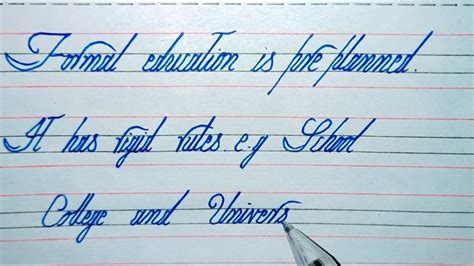 Formal education is pre planned.
It has rigid rules. e.g School
College and Univers